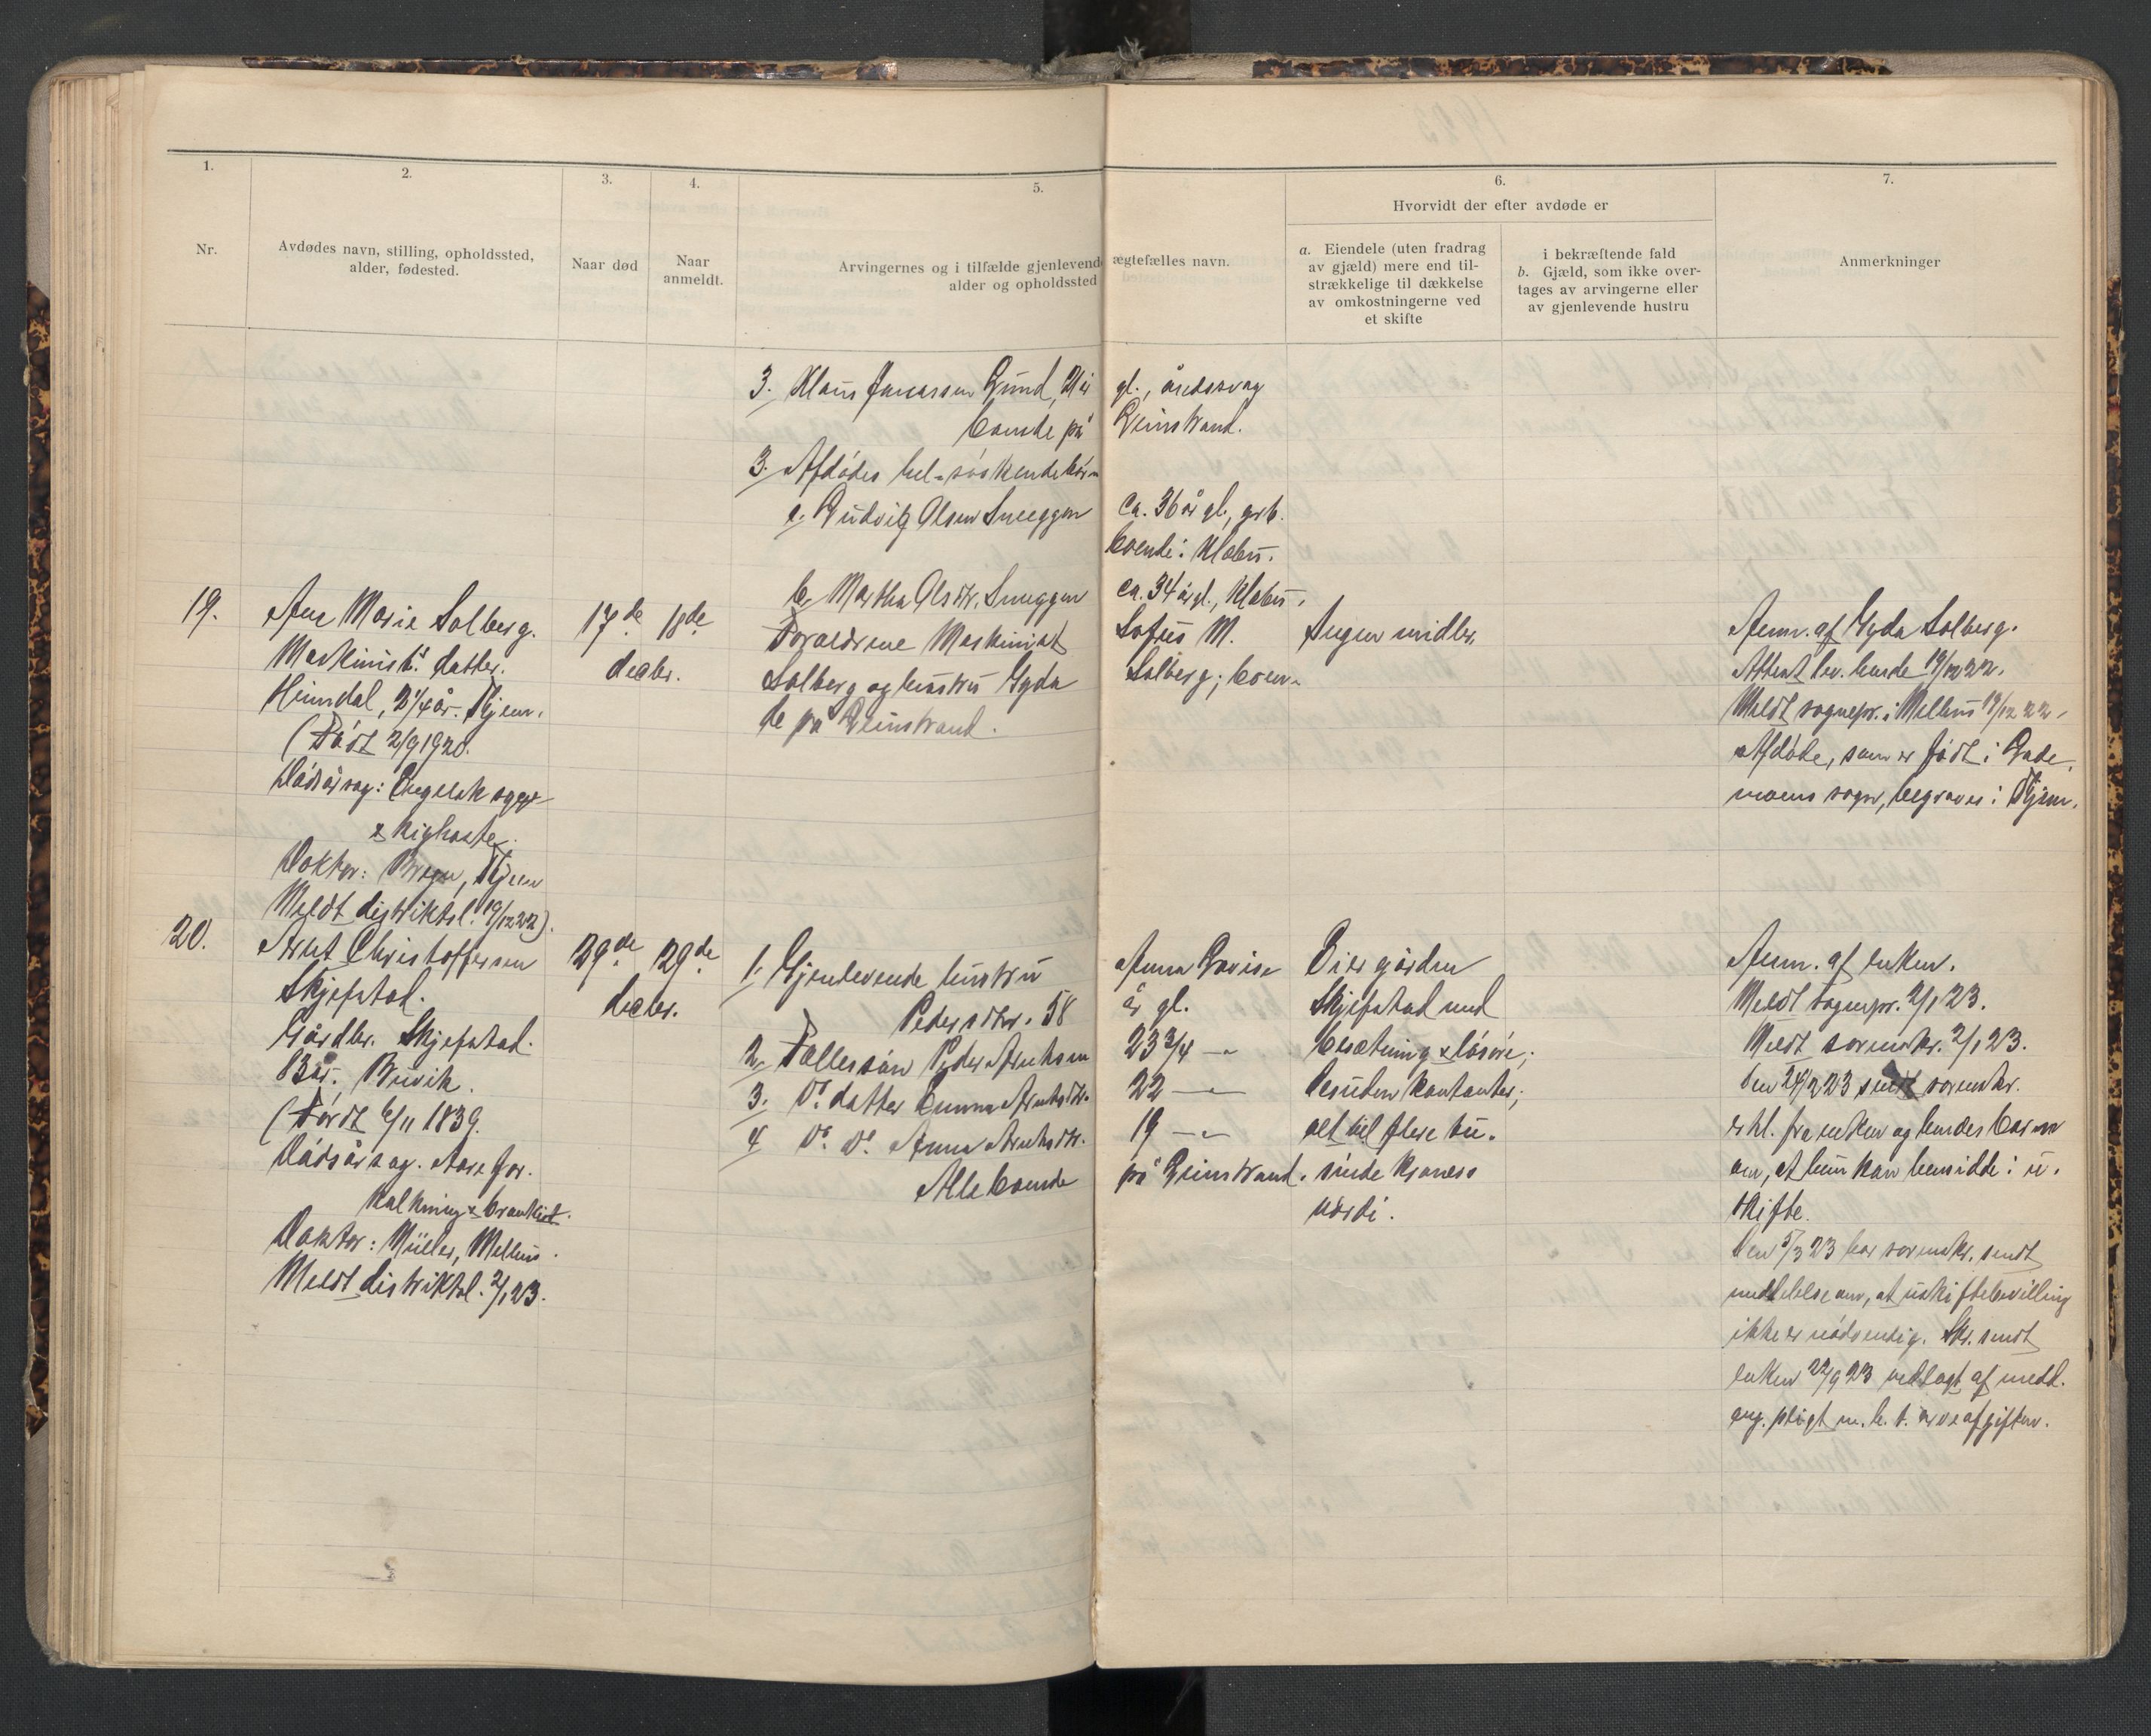 1.
2.
3.
4.
5.
6.
7.
Nr.
Avdødes navn, stilling, opholdssted,
alder, fødested.
Naar død
Naar
anmeldt.
Arvingernes og i tilfælde gjenlevende ægtefælles navn.
alder og opholdssted
Hvorvidt der efter avdøde er
a. Eiendele (uten fradrag
av gjæld) mere end til-
strækkelige til dækkelse
av omkostningerne ved
et skifte
i bekræftende fald
b. Gjæld, som ikke over-
tages av arvingerne eller
av gjenlevende hustru
Anmerkninger
3. Klaus Lund, 21 år gl., åndssvag
boende på Leinstrand.
3. Afdødes hel-søskendebørn
a. Ludvig Olsen Sneeggen ca. 36 år gl., grb.
boende i Klæbu.
b. Martha Olsdtr. Sneeggen ca. 34 år gl., Klæbu.
19.
Ane Marie Solberg.
Maskinist datter.
Heimdal, 2 1/4 år. Thjem.
(Født 2/9 1920.
Dødsårsag: Engelsk syge
& kighoste.
Doktor: , Thjem
Meldt distriktsl. 19/12 22).
17de
decbr.
18de
Forældrene Maskinist Sofus M.
Solberg og hustru Gyda Solberg; boen-
de på Leinstrand.
Ingen midler.
Anm. af Gyda Solberg.
Attest lev. hende 19/12 22.
Meldt sognepr. i Melhus 19/12 22.
Afdøde, som er født i Lade-
moens sogn, begraves i Thjem.
20.
Arnt Christoffersen
Skjefstad.
Gårdbr. Skjefstad.
83 år. Buvik.
(Født 6/11 1839.
Dødsårsag. Aarefor-
kalkning & bronkit.
Doktor: Müller, Melhus.
Meldt distriktsl. 2/1 23.
29de
decbr.
29de
1. Gjenlevende hustru Anna Lovise
Pedersdtr. 58 år gl.
2. Fællessøn Peder Arntsen 23 3/4 -"-
3. Do. datter Emma Arntsdtr. 22 -"-
4 Do. Do. Anna Arntsdtr. 19 -"-
Alle boende på Leinstrand.
Eier gården
Skjefstad med
besætning & løsøre;
desuden kontanter;
alt til flere tu-
sinde kroners
værdi.
Anm. af enken.
Meldt sognepr. 2/1 23.
Meldt sorenskr. 2/1 23.
Den 24/2 23 sendt sorenskr.
erkl. fra enken og hendes børn
om, at hun kan hensidde i u-
skifte.
Den 5/3 23 har sorenskr. sendt
meddelelse om, at uskiftebevilling
ikke er nødvendig. Skr. sendt
enken 22/9 23 vedlagt af medd.
ang. pligt m. h. t. arveafgiften.